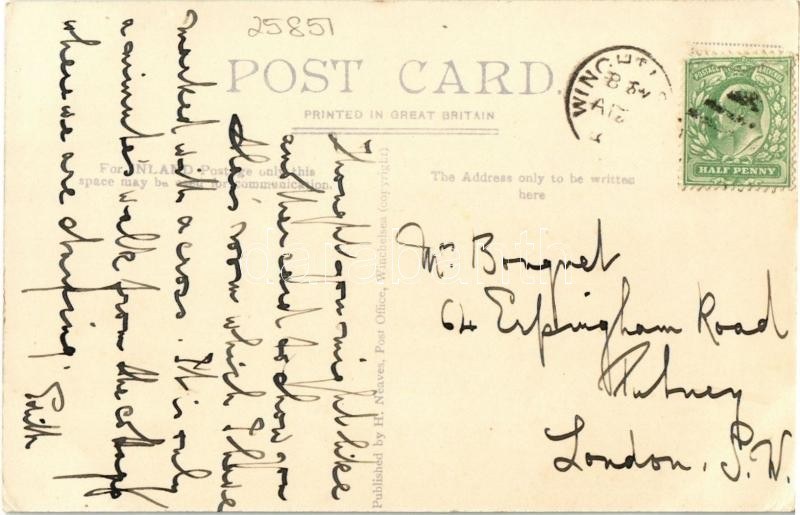 25851
POST CARD.
PRINTED IN GREAT BRITAIN
For INLAND Postage only this
space may be used for communication.
The Address only to be written
here
POSTAGE REVENUE
HALF PENNY
Thought you might like
another card to show you
this room which I have
marked with a cross. It is only
a minute's walk from the cottage
where we are staying.
Edith
Published by H. Neaves, Post Office, Winchelsea (copyright)
Mrs Bouquet
64 Erpingham Road
Putney
London. S.W.
darabanth